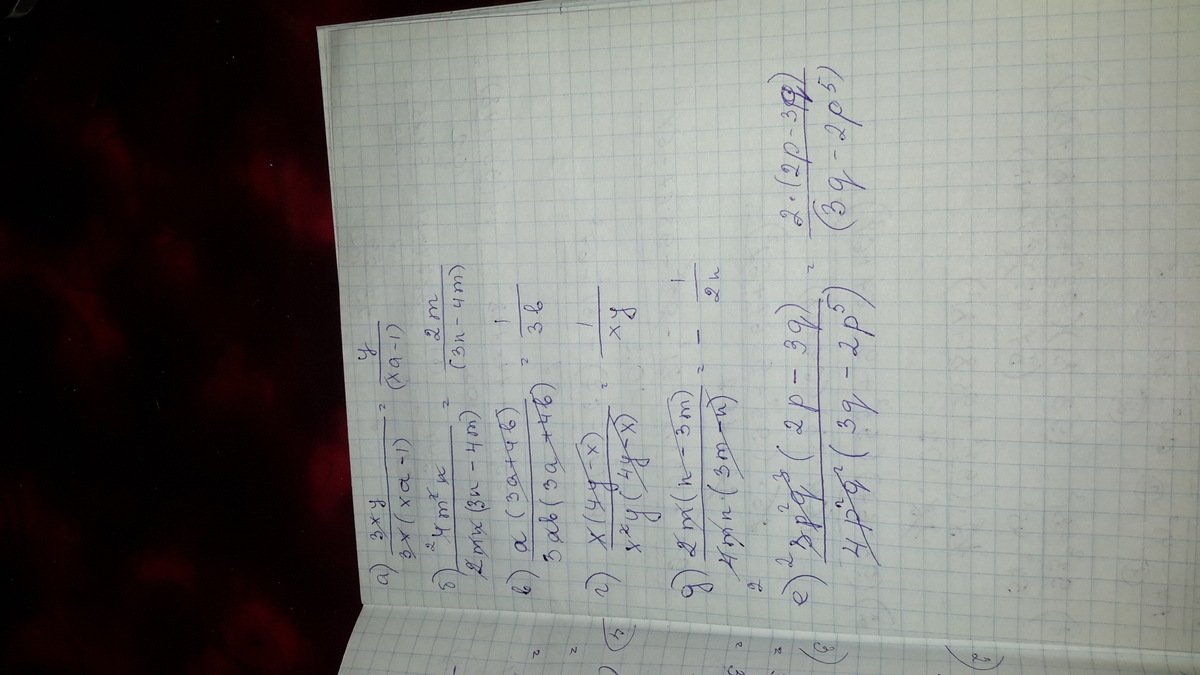 а) 3xy / 3x(xa-1) = y / (xa-1)
б) ²4m²n / 2mn(3n-4m) = 2m / (3n-4m)
в) a(3a+4b) / 3ab(3a+4b) = 1 / 3b
г) x(4y-x) / x²y(4y-x) = 1 / xy
д) 2m(n-3m) / 4mn(3m-n) = - 1 / 2n
2
е) ² p²q³(2p-3q) / 4p²q²(3q-2p⁵) = 2·(2p-3q) / (3q-2p⁵)